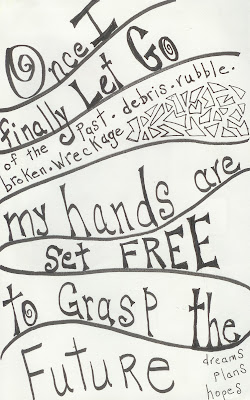 Once I
finally Let Go
of the past.debris.rubble.
broken.wreckage
my hands are
set FREE
to Grasp the
Future
dreams
plans
hopes